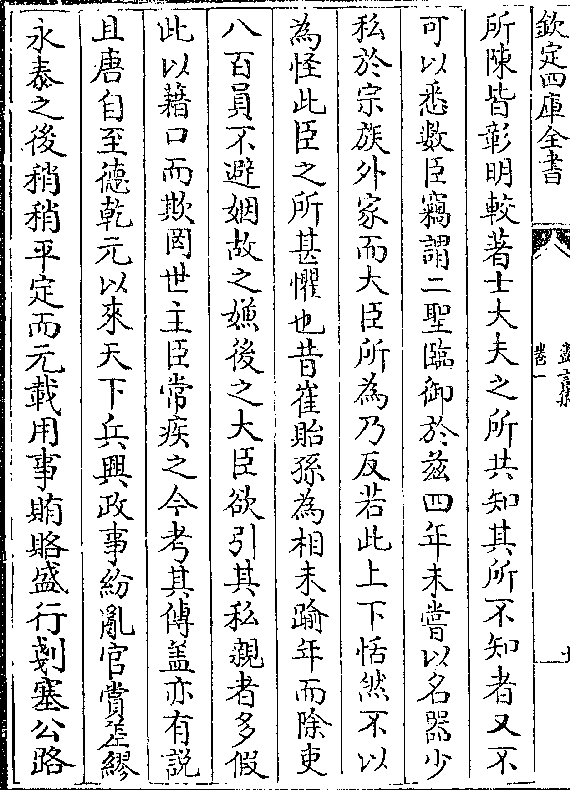 欽定四庫全書
盡言集
卷一
所陳皆彰明較著士大夫之所共知其所不知者又不
可以悉數臣竊謂二聖臨御於兹四年未嘗以名器少
私於宗族外家而大臣所為乃反若此上下恬然不以
為怪此臣之所甚懼也昔崔貽孫為相未踰年而除吏
八百員不避姻故之嫌後之大臣欲引其私親者多假
此以藉口而欺罔世主臣常疾之今考其傳盖亦有説
且唐自至德乾元以來天下兵興政事紛亂官賞差繆
永泰之後稍稍平定而元載用事賄賂盛行剗塞公路